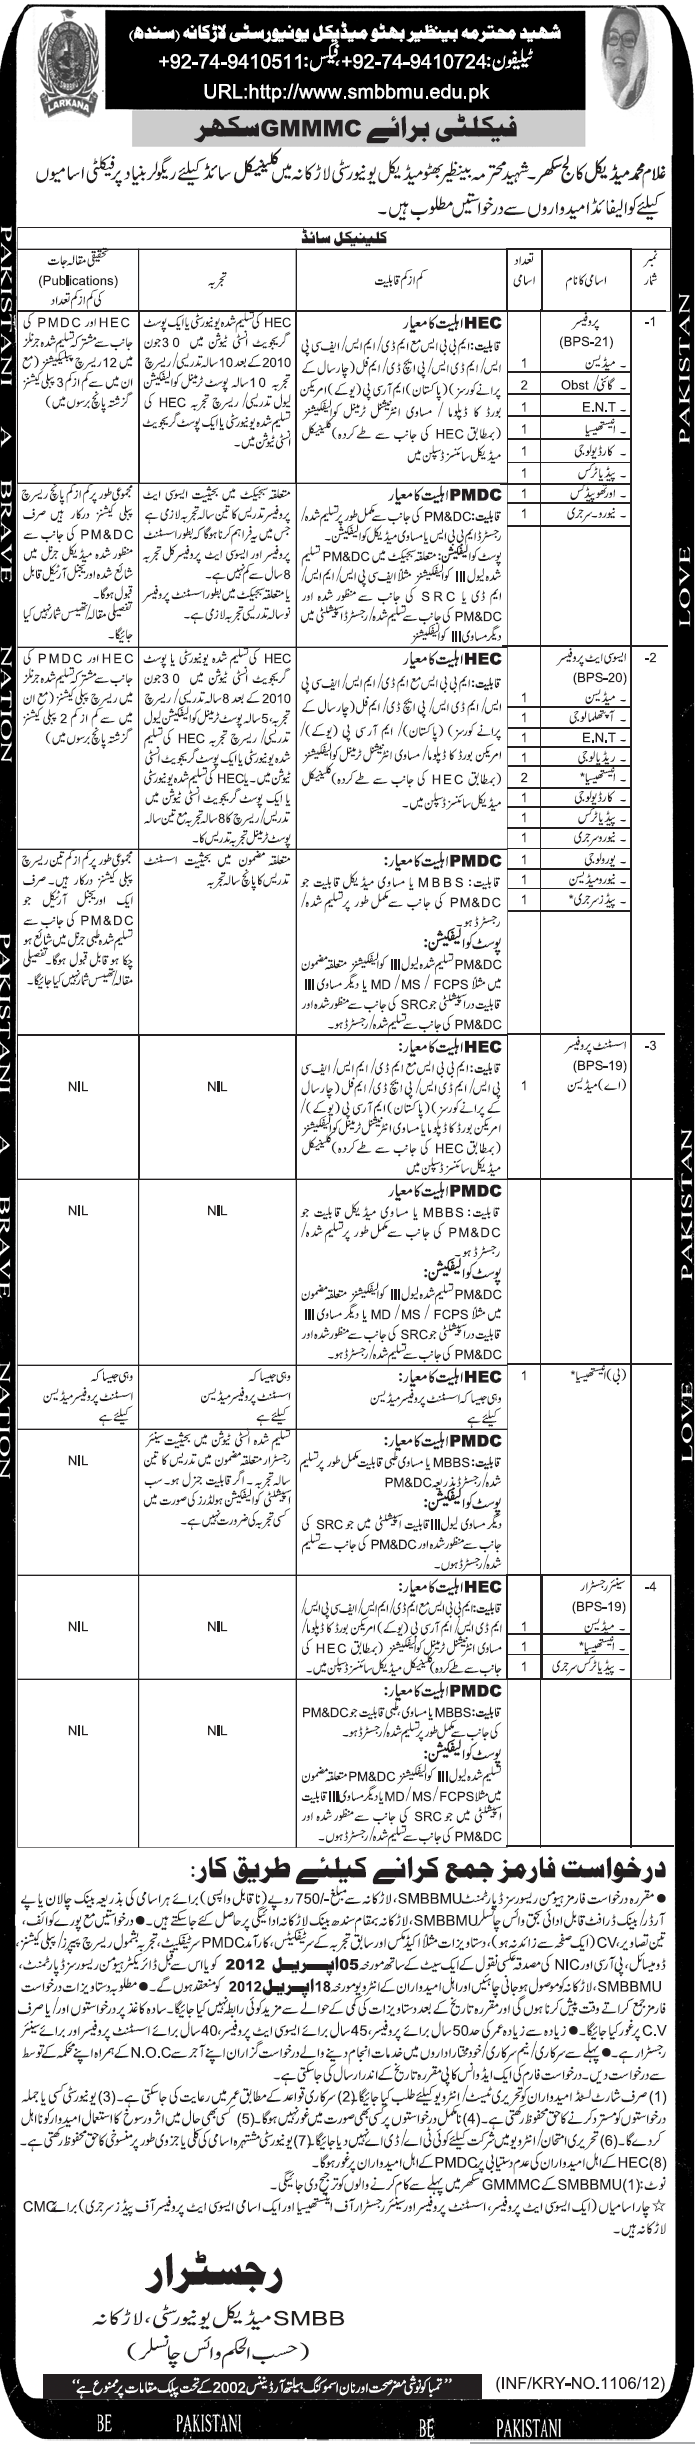 شهید محترمہ بینظیر بھٹو میڈیکل یونیورسٹی لاڑکانہ (سندھ)
ٹیلیفون: 92-74-9410724+، فیکس: 92-74-9410511+
URL:http://www.smbbmu.edu.pk
LARKANA
فیکلٹی برائے GMMMC سکھر
غلام محمد میڈیکل کالج سکھر۔ شہید محترمہ بینظیر بھٹو میڈیکل یونیورسٹی لاڑکانہ میں کلینیکل سائڈ کیلئے ریگولر بنیاد پر فیکلٹی اسامیوں
کیلئے کوالیفائڈ امیدواروں سے درخواستیں مطلوب ہیں۔
کلینیکل سائڈ
نمبر شمار
اسامی کا نام
تعداد اسامی
کم از کم قابلیت
تجربہ
تحقیقی مقالہ جات (Publications) کی کم از کم تعداد
1-
پروفیسر
(BPS-21)
۔ میڈیسن 1
۔ گائنی/ Obst 2
۔ E.N.T 1
۔ انیستھیسیا 1
۔ کارڈیولوجی 1
۔ پیڈیاٹرکس 1
۔ اورتھوپیڈکس 1
۔ نیورو۔سرجری 1
HEC اہلیت کا معیار
قابلیت: ایم بی بی ایس مع ایم ڈی/ ایم ایس/ ایف سی پی
ایس/ ایم ڈی ایس/ پی ایچ ڈی/ ایم فل (چار سال کے
پرانے کورسز) (پاکستان) ایم آر سی پی (یو کے) امریکن
بورڈ کا ڈپلوما / مساوی انٹرنیشنل ٹرمینل کوالیفکیشنز
(بمطابق HEC کی جانب سے طے کردہ) کلینیکل
میڈیکل سائنسز ڈسپلن میں
HEC کی تسلیم شدہ یونیورسٹی یا ایک پوسٹ
گریجویٹ انسٹی ٹیوشن میں 30 جون
2010 کے بعد 10 سالہ تدریسی/ ریسرچ
تجربہ 10 سالہ پوسٹ ٹرمینل کوالیفکیشن
لیول تدریسی/ ریسرچ تجربہ HEC کی
تسلیم شدہ یونیورسٹی یا ایک پوسٹ گریجویٹ
انسٹی ٹیوشن میں۔
HEC اور PMDC کی
جانب سے مشترکہ تسلیم شدہ جرنلز
میں 12 ریسرچ پبلیکیشنز (مع
ان میں سے کم از کم 3 پبلی کیشنز
گزشتہ پانچ برسوں میں)
PMDC اہلیت کا معیار
قابلیت: PM&DC کی جانب سے مکمل طور پر تسلیم شدہ/
رجسٹرڈ ایم بی بی ایس یا مساوی میڈیکل کوالیفکیشن۔
پوسٹ کوالیفکیشن: متعلقہ سبجیکٹ میں PM&DC تسلیم
شدہ لیول III کوالیفکیشنز مثلاً ایف سی پی ایس/ ایم ایس/
ایم ڈی یا SRC کی جانب سے منظور شدہ اور
PM&DC کی جانب سے تسلیم شدہ/ رجسٹرڈ اسپیشلٹی میں
دیگر مساوی III کوالیفکیشنز
متعلقہ سبجیکٹ میں بحیثیت ایسوسی ایٹ
پروفیسر تدریس کا تین سالہ تجربہ لازمی ہے
جس میں یہ فراہم کرنا ہوگا کہ بطور اسسٹنٹ
پروفیسر اور ایسوسی ایٹ پروفیسر کل تجربہ
8 سال سے کم نہیں ہے۔
یا متعلقہ سبجیکٹ میں بطور اسسٹنٹ پروفیسر
نو سالہ تدریسی تجربہ لازمی ہے۔
مجموعی طور پر کم از کم پانچ ریسرچ
پبلی کیشنز درکار ہیں صرف
PM&DC کی جانب سے
منظور شدہ میڈیکل جرنل میں
شائع شدہ اوریجنل آرٹیکل قابل
قبول ہوگا۔
تفصیلی مقالہ/ تھیسس شمار نہیں کیا
جائیگا۔
2-
ایسوسی ایٹ پروفیسر
(BPS-20)
۔ میڈیسن 1
۔ آپتھلمالوجی 1
۔ E.N.T 1
۔ ریڈیالوجی 1
۔ انیستھیسیا* 2
۔ کارڈیولوجی 1
۔ پیڈیاٹرکس 1
۔ نیورو سرجری 1
۔ یورولوجی 1
۔ نیورو میڈیسن 1
۔ پیڈز سرجری* 1
HEC اہلیت کا معیار:
قابلیت: ایم بی بی ایس مع ایم ڈی/ ایم ایس/ ایف سی پی
ایس/ ایم ڈی ایس/ پی ایچ ڈی/ ایم فل (چار سال کے
پرانے کورسز) (پاکستان)/ ایم آر سی پی (یو کے)/
امریکن بورڈ کا ڈپلوما/ مساوی انٹرنیشنل ٹرمینل کوالیفکیشنز
(بمطابق HEC کی جانب سے طے کردہ) کلینیکل
میڈیکل سائنسز ڈسپلن میں۔
HEC کی تسلیم شدہ یونیورسٹی یا پوسٹ
گریجویٹ انسٹی ٹیوشن میں 30 جون
2010 کے بعد 8 سالہ تدریسی/ ریسرچ
تجربہ، 5 سالہ پوسٹ ٹرمینل کوالیفکیشن لیول
تدریسی/ ریسرچ تجربہ HEC کی تسلیم
شدہ یونیورسٹی یا ایک پوسٹ گریجویٹ انسٹی
ٹیوشن میں۔ یا HEC کی تسلیم شدہ یونیورسٹی
یا ایک پوسٹ گریجویٹ انسٹی ٹیوشن میں
تدریس/ ریسرچ کا 8 سالہ تجربہ مع تین سالہ
پوسٹ ٹرمینل تجربہ تدریس کا۔
HEC اور PMDC کی
جانب سے مشترکہ تسلیم شدہ جرنلز
میں ریسرچ پبلی کیشنز (مع ان
میں سے کم از کم 2 پبلی کیشنز
گزشتہ پانچ برسوں میں)
PMDC اہلیت کا معیار:
قابلیت: MBBS یا مساوی میڈیکل قابلیت جو
PM&DC کی جانب سے مکمل طور پر تسلیم شدہ/
رجسٹرڈ ہو۔
پوسٹ کوالیفکیشن:
PM&DC تسلیم شدہ لیول III کوالیفکیشنز متعلقہ مضمون
میں مثلاً MD / MS / FCPS یا دیگر مساوی III
قابلیت در اسپیشلٹی جو SRC کی جانب سے منظور شدہ اور
PM&DC کی جانب سے تسلیم شدہ/ رجسٹرڈ ہو۔
متعلقہ مضمون میں بحیثیت اسسٹنٹ
تدریس کا پانچ سالہ تجربہ
مجموعی طور پر کم از کم تین ریسرچ
پبلی کیشنز درکار ہیں۔ صرف
ایک اوریجنل آرٹیکل جو
PM&DC کی جانب سے
تسلیم شدہ طبی جرنل میں شائع ہو
چکا ہو قابل قبول ہوگا۔ تفصیلی
مقالہ/ تھیسس شمار نہیں کیا جائیگا۔
3-
اسسٹنٹ پروفیسر
(BPS-19)
(اے) میڈیسن 1
HEC اہلیت کا معیار:
قابلیت: ایم بی بی ایس مع ایم ڈی/ ایم ایس/ ایف سی
پی ایس/ ایم ڈی ایس/ پی ایچ ڈی/ ایم فل (چار سال
کے پرانے کورسز) (پاکستان) ایم آر سی پی (یو کے)/
امریکن بورڈ کا ڈپلوما یا مساوی انٹرنیشنل ٹرمینل کوالیفکیشنز
(بمطابق HEC کی جانب سے طے کردہ) کلینیکل
میڈیکل سائنسز ڈسپلن میں
NIL
NIL
PMDC اہلیت کا معیار
قابلیت: MBBS یا مساوی میڈیکل قابلیت جو
PM&DC کی جانب سے مکمل طور پر تسلیم شدہ/
رجسٹرڈ ہو۔
پوسٹ کوالیفکیشن:
PM&DC تسلیم شدہ لیول III کوالیفکیشنز متعلقہ مضمون
میں مثلاً MD / MS / FCPS یا دیگر مساوی III
قابلیت در اسپیشلٹی جو SRC کی جانب سے منظور شدہ اور
PM&DC کی جانب سے تسلیم شدہ/ رجسٹرڈ ہو۔
NIL
NIL
(بی) انیستھیسیا* 1
HEC اہلیت کا معیار:
وہی جیسا کہ اسسٹنٹ پروفیسر میڈیسن
کیلئے ہے
وہی جیسا کہ
اسسٹنٹ پروفیسر میڈیسن
کیلئے ہے
وہی جیسا کہ
اسسٹنٹ پروفیسر میڈیسن
کیلئے ہے
PMDC اہلیت کا معیار:
قابلیت: MBBS یا مساوی طبی قابلیت مکمل طور پر تسلیم
شدہ/ رجسٹرڈ بذریعہ PM&DC
پوسٹ کوالیفکیشن:
دیگر مساوی لیول III قابلیت اسپیشلٹی میں جو SRC کی
جانب سے منظور شدہ اور PM&DC کی جانب سے تسلیم
شدہ/ رجسٹرڈ ہوں۔
تسلیم شدہ انسٹی ٹیوشن میں بحیثیت سینئر
رجسٹرار متعلقہ مضمون میں تدریس کا تین
سالہ تجربہ۔ اگر قابلیت جنرل ہو۔ سب
اسپیشلٹی کوالیفکیشن ہولڈرز کی صورت میں
کسی تجربہ کی ضرورت نہیں ہے۔
NIL
4-
سینئر رجسٹرار
(BPS-19)
۔ میڈیسن 1
۔ انیستھیسیا* 1
۔ پیڈیاٹرکس سرجری 1
HEC اہلیت کا معیار:
قابلیت: ایم بی بی ایس مع ایم ڈی/ ایم ایس/ ایف سی پی ایس/
ایم ڈی ایس/ ایم آر سی پی (یو کے) امریکن بورڈ کا ڈپلوما/
مساوی انٹرنیشنل ٹرمینل کوالیفکیشنز (بمطابق HEC کی
جانب سے طے کردہ) کلینیکل میڈیکل سائنسز ڈسپلن میں۔
NIL
NIL
PMDC اہلیت کا معیار:
قابلیت: MBBS یا مساوی، طبی قابلیت جو PM&DC
کی جانب سے مکمل طور پر تسلیم شدہ/ رجسٹرڈ ہو۔
پوسٹ کوالیفکیشن:
تسلیم شدہ لیول III کوالیفکیشنز PM&DC متعلقہ مضمون
میں مثلاً MD/MS/FCPS یا دیگر مساوی III قابلیت
اسپیشلٹی میں جو SRC کی جانب سے منظور شدہ اور
PM&DC کی جانب سے تسلیم شدہ/ رجسٹرڈ ہوں۔
NIL
NIL
درخواست فارمز جمع کرانے کیلئے طریق کار:
● مقررہ درخواست فارمز ہیومن ریسورسز ڈپارٹمنٹ SMBBMU، لاڑکانہ سے مبلغ -/750 روپے (ناقابل واپسی) برائے ہر اسامی کی بذریعہ بینک چالان یا پے
آرڈر/ بینک ڈرافٹ قابل ادائی بحق وائس چانسلر SMBBMU، لاڑکانہ بمقام سندھ بینک لاڑکانہ ادائیگی پر حاصل کئے جاسکتے ہیں۔ ● درخواستیں مع پورے کوائف،
تین تصاویر، CV (ایک صفحے سے زائد نہ ہو)، دستاویزات مثلاً اکیڈمکس اور سابق تجربہ کے سرٹیفکیٹس، کارآمد PMDC سرٹیفکیٹ، تجربہ بشمول ریسرچ پیپرز/ پبلی کیشنز،
ڈومیسائل، پی آر سی اور NIC کی مصدقہ عکسی نقول کے ایک سیٹ کے ساتھ مورخہ 05 اپریل 2012 کو یا اس سے قبل ڈائریکٹر ہیومن ریسورسز ڈپارٹمنٹ،
SMBBMU، لاڑکانہ کو موصول ہوجانی چاہئیں اور اہل امیدواران کے انٹرویو مورخہ 18 اپریل 2012 کو منعقد ہوں گے۔ ● مطلوبہ دستاویزات درخواست
فارمز جمع کراتے وقت پیش کرنا ہوں گی اور مقررہ تاریخ کے بعد دستاویزات کی کمی کے حوالے سے مزید کوئی رابطہ نہیں کیا جائیگا۔ سادہ کاغذ پر درخواستوں اور/ یا صرف
C.V پر غور کیا جائیگا۔ ● زیادہ سے زیادہ عمر کی حد 50 سال برائے پروفیسر، 45 سال برائے ایسوسی ایٹ پروفیسر، 40 سال برائے اسسٹنٹ پروفیسر اور برائے سینئر
رجسٹرار ہے۔ ● پہلے سے سرکاری/ نیم سرکاری/ خودمختار اداروں میں خدمات انجام دینے والے درخواست گزاران اپنے آجر سے N.O.C کے ہمراہ اپنے محکمہ کے توسط
سے درخواست دیں۔ درخواست فارم کی ایک ایڈوانس کاپی مقررہ تاریخ کے اندر ارسال کی جاسکتی ہے۔
(1) صرف شارٹ لسٹڈ امیدواران کو تحریری ٹیسٹ/ انٹرویو کیلئے طلب کیا جائیگا۔ (2) سرکاری قواعد کے مطابق عمر میں رعایت کی جاسکتی ہے۔ (3) یونیورسٹی کسی یا جملہ
درخواستوں کو مسترد کرنے کا حق محفوظ رکھتی ہے۔ (4) نامکمل درخواستوں پر کسی بھی صورت میں غور نہیں ہوگا۔ (5) کسی بھی حال میں اثر و رسوخ کا استعمال امیدوار کو نا اہل
کردے گا۔ (6) تحریری امتحان/ انٹرویو میں شرکت کیلئے کوئی ٹی اے/ ڈی اے نہیں دیا جائیگا۔ (7) یونیورسٹی مشتہرہ اسامی کی کلی یا جزوی طور پر منسوخی کا حق محفوظ رکھتی ہے۔
(8) HEC کے اہل امیدواران کی عدم دستیابی پر PMDC کے اہل امیدواران پر غور ہوگا۔
نوٹ: (1) SMBBMU کے GMMMC سکھر میں پہلے سے کام کرنے والوں کو ترجیح دی جائیگی۔
☆ چار اسامیاں (ایک ایسوسی ایٹ پروفیسر، اسسٹنٹ پروفیسر اور سینئر رجسٹرار آف انیستھیسیا اور ایک اسامی ایسوسی ایٹ پروفیسر آف پیڈز سرجری) برائے CMC
لاڑکانہ ہیں۔
رجسٹرار
SMBB میڈیکل یونیورسٹی، لاڑکانہ
(حسب الحکم وائس چانسلر)
(INF/KRY-NO.1106/12)
"تمباکو نوشی مضر صحت اور نان اسموکنگ ہیلتھ آرڈیننس 2002 کے تحت پبلک مقامات پر ممنوع ہے"
PAKISTANI A BRAVE NATION
PAKISTANI A BRAVE NATION
LOVE PAKISTAN
LOVE PAKISTAN
BE PAKISTANI
BE PAKISTANI